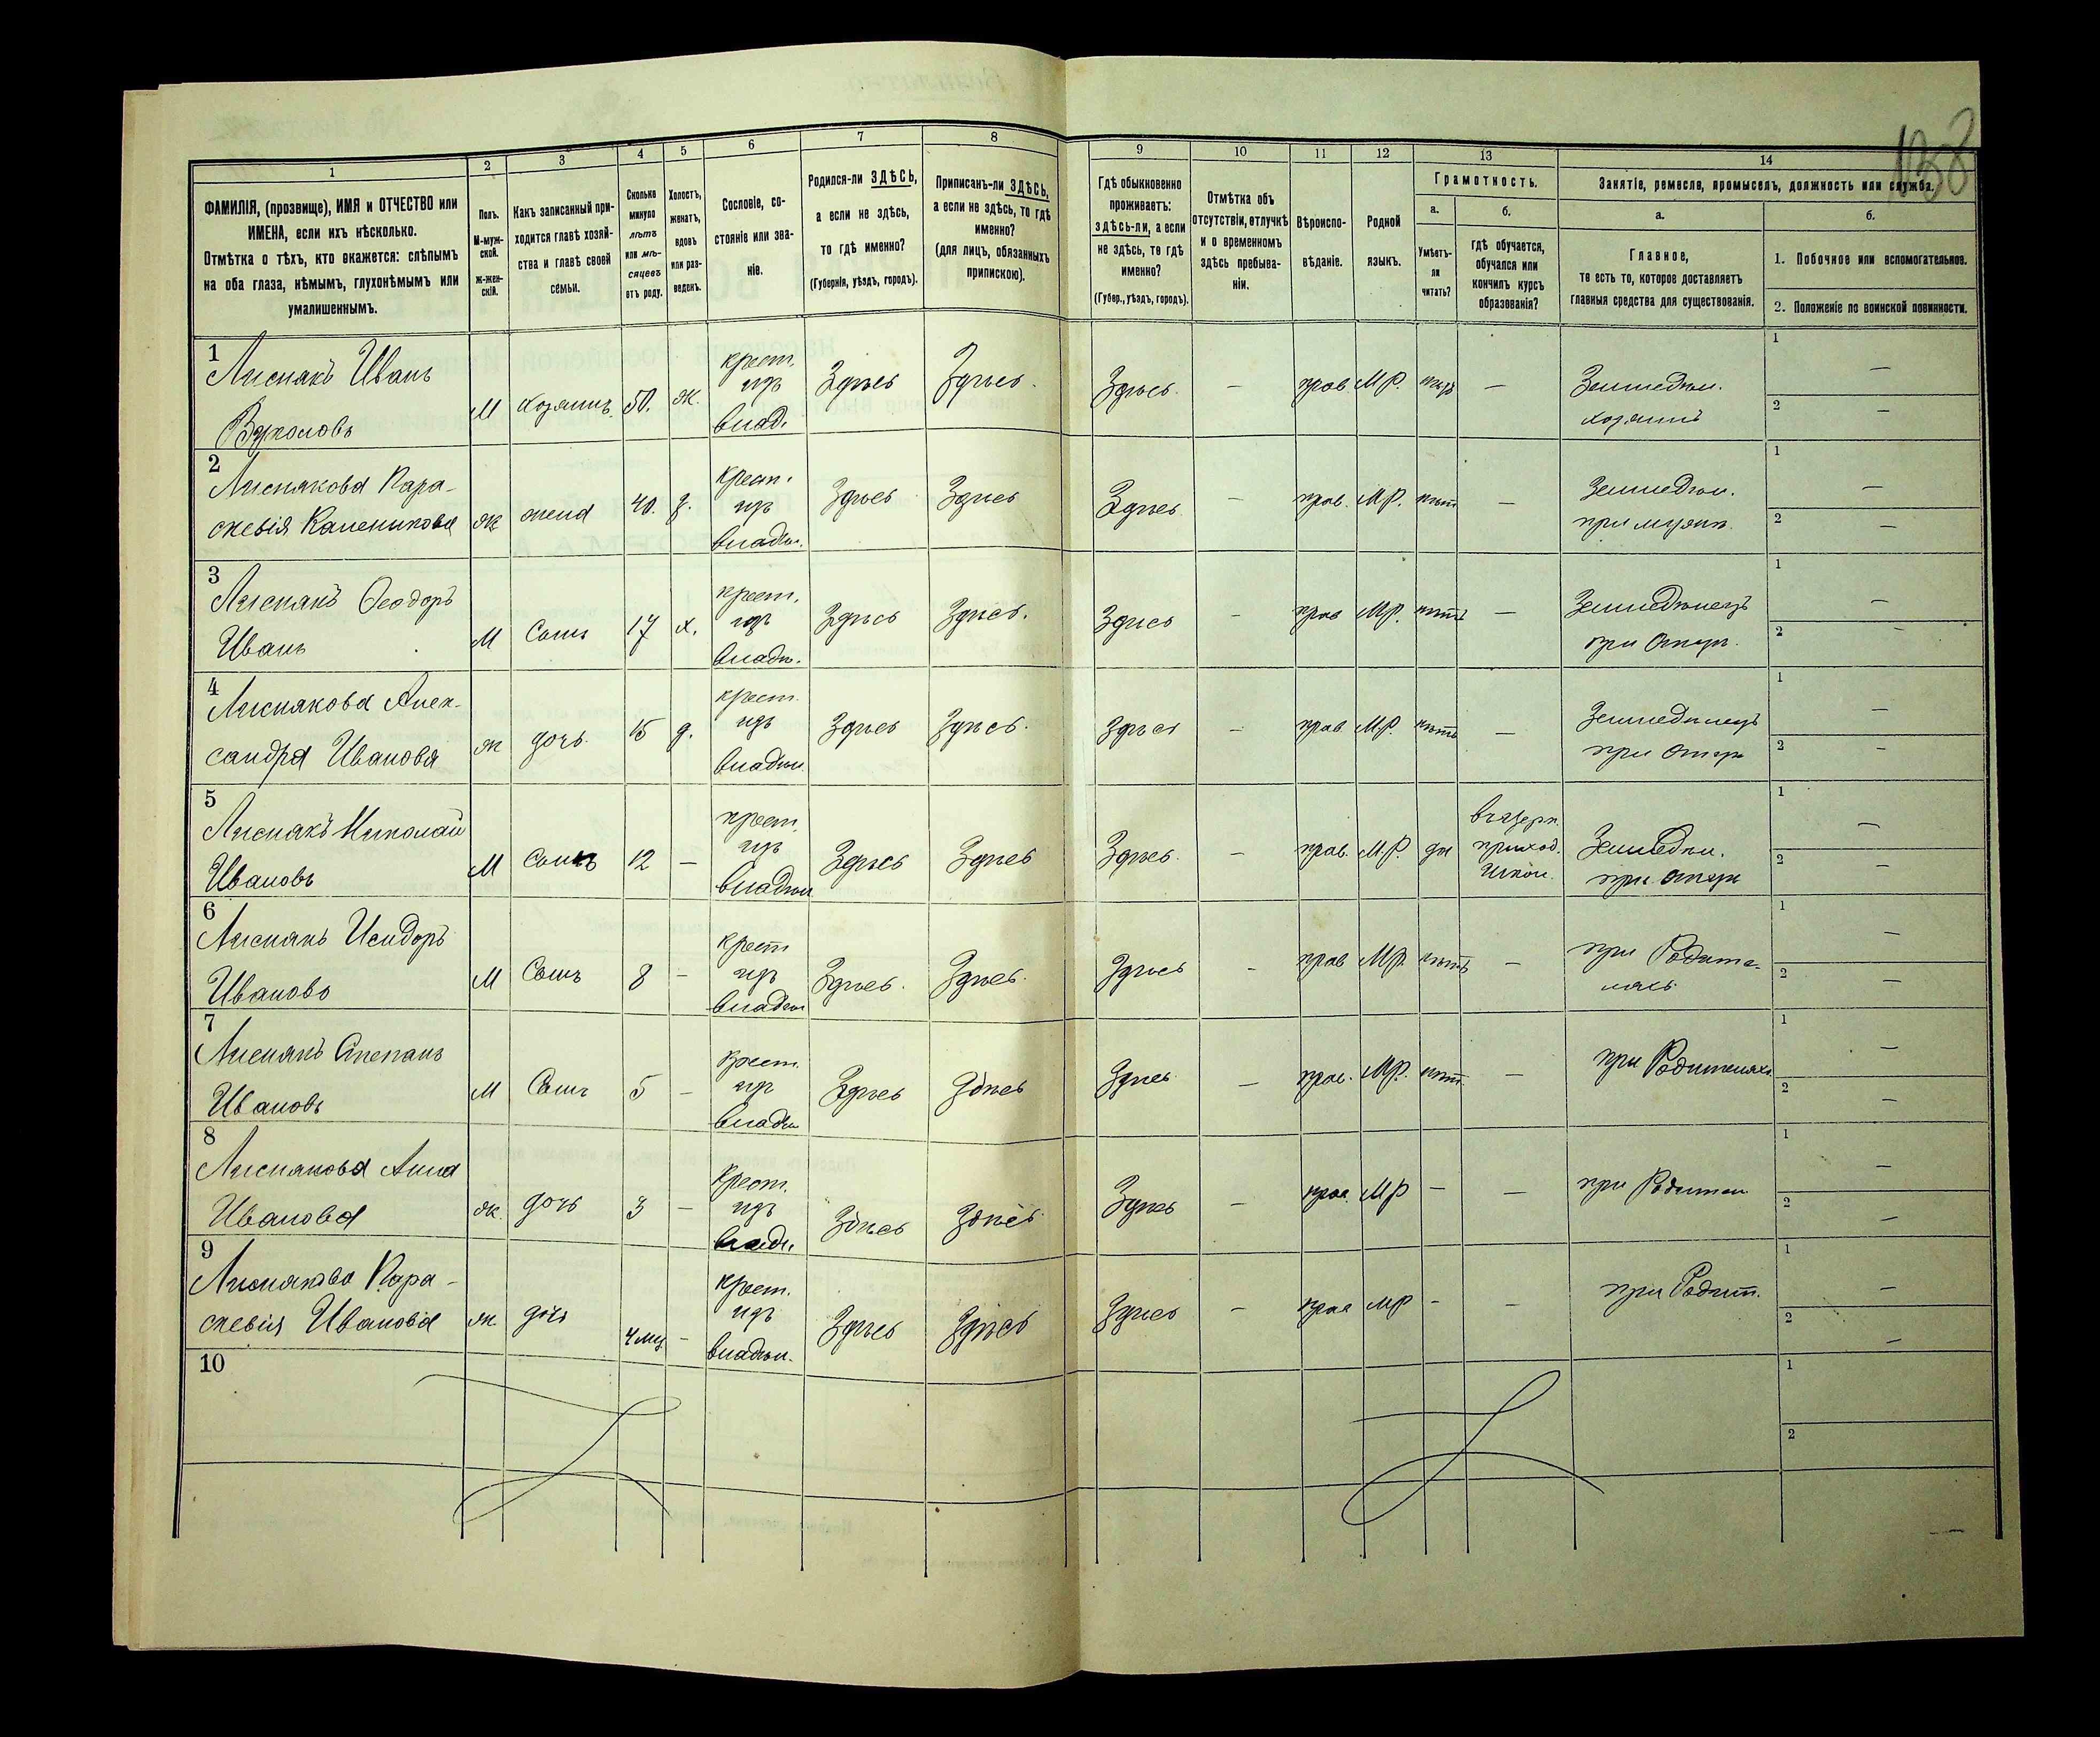 138
1 2 3 4 5 6 7 8 9 10 11 12 13 14
ФАМИЛІЯ, (прозвище), ИМЯ и ОТЧЕСТВО или
ИМЕНА, если ихъ нѣсколько.
Отмѣтка о тѣхъ, кто окажется: слѣпымъ
на оба глаза, нѣмымъ, глухонѣмымъ или
умалишеннымъ.
Полъ.
М-муж-
ской.
ж-жен-
скій.
Какъ записанный при-
ходится главѣ хозяй-
ства и главѣ своей
семьи.
Сколько
минуло
лѣтъ
или мѣ-
сяцевъ
отъ роду.
Холостъ,
женатъ,
вдовъ
или раз-
веденъ.
Сословіе, со-
стояніе или зва-
ніе.
Родился-ли ЗДѢСЬ,
а если не здѣсь,
то гдѣ именно?
(Губернія, уѣздъ, городъ).
Приписанъ-ли ЗДѢСЬ,
а если не здѣсь, то гдѣ
именно?
(для лицъ, обязанныхъ
припискою).
Гдѣ обыкновенно
проживаетъ:
здѣсь-ли, а если
не здѣсь, то гдѣ
именно?
(Губер., уѣздъ, городъ).
Отмѣтка объ
отсутствіи, отлучкѣ
и о временномъ
здѣсь пребыва-
ніи.
Вѣроиспо-
вѣданіе.
Родной
языкъ.
Грамотность.
а.
Умѣетъ-
ли
читать?
б.
гдѣ обучается,
обучался или
кончилъ курсъ
образованія?
Занятіе, ремесло, промыселъ, должность или служба.
а.
Главное,
то есть то, которое доставляетъ
главныя средства для существованія.
б.
1. Побочное или вспомогательное.
2. Положеніе по воинской повинности.
1
Лиснякъ Иванъ
Вуколовъ
М хозяинъ. 50. ж. крест. изъ влад. Здѣсь Здѣсь. Здѣсь. — прав. М.Р. нѣтъ — Земледѣл. хозяинъ 1 — 2 —
2
Лиснякова Пара-
скевія
ж жена 40. з. крест. изъ владѣл. Здѣсь Здѣсь Здѣсь — прав. М.Р. нѣтъ — Земледѣл. при мужѣ. 1 — 2 —
3
Лиснякъ Ѳеодоръ
Иванъ
М Сынъ 17 х. крест. изъ владѣ. Здѣсь Здѣсь. Здѣсь — прав М.Р. нѣтъ — Земледѣлецъ при Отцѣ. 1 — 2 —
4
Лиснякова Алек-
сандра Иванова
ж дочь. 15 д. крест. изъ владѣл. Здѣсь Здѣсь. Здѣсь — прав. М.Р. нѣтъ — Земледѣлецъ при Отцѣ 1 — 2 —
5
Лиснякъ Николай
Ивановъ
М Сынъ 12 — крест. изъ владѣл Здѣсь Здѣсь Здѣсь. — прав. М.Р. да въ церк. приход. школ. Земледѣл. при Отцѣ 1 — 2 —
6
Лиснякъ Исидоръ
Ивановъ
М Сынъ 8 — крест изъ владѣл Здѣсь. Здѣсь. Здѣсь — прав М.Р. нѣтъ — при Родите-
ляхъ 1 — 2 —
7
Лиснякъ Степанъ
Ивановъ
М Сынъ 5 — крест. изъ владѣл Здѣсь Здѣсь Здѣсь — прав. М.Р. нѣт. — при Родителяхъ 1 — 2 —
8
Лиснякова Анна
Иванова
ж. дочь 3 — крест. изъ влад. Здѣсь Здѣсь Здѣсь — прав. М.Р — — при Родител 1 — 2 —
9
Лиснякова Пара-
скевія Иванова
ж дочь 4 мц — крест. изъ владѣл. Здѣсь Здѣсь Здѣсь — прав М.Р — — при Родит. 1 — 2 —
10
1
2